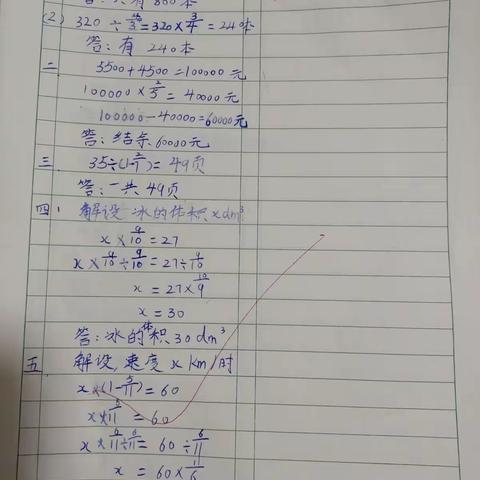 答：共有800本
(2) 320÷4/3=320×3/4=240本
答：有 240本
二 5500+4500=100000元
100000×2/5=40000元
100000-40000=60000元
答：结余60000元
三 35÷(1-2/7)=49页
答：一共49页
四：解设 冰的体积xdm³
x×9/10=27
x×9/10÷9/10=27÷9/10
x=27×10/9
x=30
答：冰的体积30dm³
五 解设，速度x km/时
x×(1-5/11)=60
=60
x×6/11÷6/11=60÷6/11
x=60×11/6